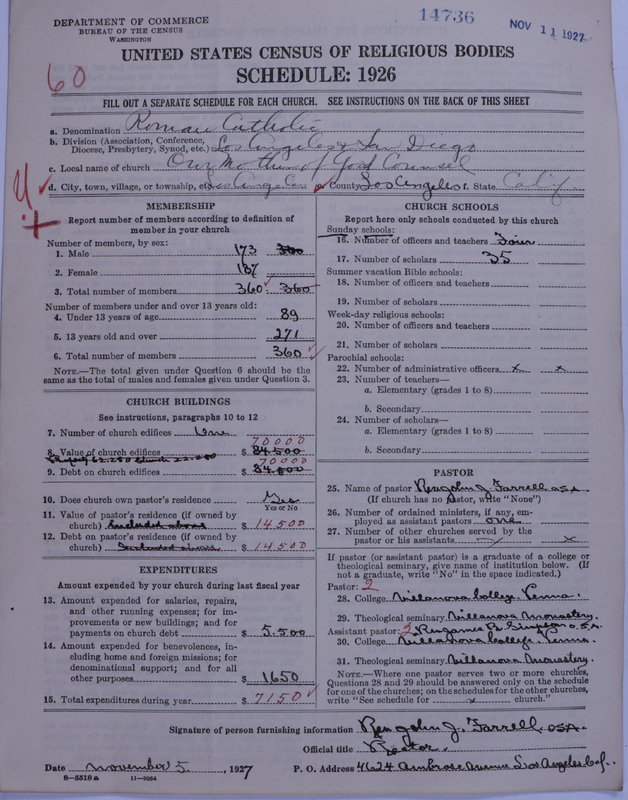 DEPARTMENT OF COMMERCE
BUREAU OF THE CENSUS
WASHINGTON
14736
NOV 11 1927
UNITED STATES CENSUS OF RELIGIOUS BODIES
SCHEDULE: 1926
60
FILL OUT A SEPARATE SCHEDULE FOR EACH CHURCH. SEE INSTRUCTIONS ON THE BACK OF THIS SHEET
a. Denomination Roman Catholic
b. Division (Association, Conference, Diocese, Presbytery, Synod, etc.) Los Angeles & San Diego
c. Local name of church Our Mother of Good Counsel
d. City, town, village, or township, etc. Los Angeles e. County Los Angeles f. State Calif
MEMBERSHIP
Report number of members according to definition of
member in your church
Number of members, by sex:
1. Male 173 360
2. Female 187
3. Total number of members 360 360
Number of members under and over 13 years old:
4. Under 13 years of age 89
5. 13 years old and over 271
6. Total number of members 360
NOTE.—The total given under Question 6 should be the
same as the total of males and females given under Question 3.
CHURCH BUILDINGS
See instructions, paragraphs 10 to 12
7. Number of church edifices One
70000
8. Value of church edifices $ 84.500
70000
9. Debt on church edifices $ 84.500
10. Does church own pastor's residence Yes
Yes or No
11. Value of pastor's residence (if owned by
church) Included above $ 14500
12. Debt on pastor's residence (if owned by
church) Included above $ 14500
EXPENDITURES
Amount expended by your church during last fiscal year
13. Amount expended for salaries, repairs,
and other running expenses; for im-
provements or new buildings; and for
payments on church debt $ 5.500
14. Amount expended for benevolences, in-
cluding home and foreign missions; for
denominational support; and for all
other purposes $ 1650
15. Total expenditures during year $ 7150
CHURCH SCHOOLS
Report here only schools conducted by this church
Sunday schools:
16. Number of officers and teachers Four
17. Number of scholars 35
Summer vacation Bible schools:
18. Number of officers and teachers
19. Number of scholars
Week-day religious schools:
20. Number of officers and teachers
21. Number of scholars
Parochial schools:
22. Number of administrative officers x x
23. Number of teachers—
a. Elementary (grades 1 to 8)
b. Secondary
24. Number of scholars—
a. Elementary (grades 1 to 8)
b. Secondary
PASTOR
25. Name of pastor Rev John J. Farrell OSA
(If church has no pastor, write "None")
26. Number of ordained ministers, if any, em-
ployed as assistant pastors one
27. Number of other churches served by the
pastor or his assistants x x
If pastor (or assistant pastor) is a graduate of a college or
theological seminary, give name of institution below. (If
not a graduate, write "No" in the space indicated.)
Pastor: 2
28. College Villanova College Penna.
29. Theological seminary Villanova Monastery.
Assistant pastor: 2 Rev James R. O.S.A.
30. College Villanova College. Penna.
31. Theological seminary Villanova Monastery.
NOTE.—Where one pastor serves two or more churches,
Questions 28 and 29 should be answered only on the schedule
for one of the churches; on the schedules for the other churches,
write "See schedule for x church."
Signature of person furnishing information Rev John J. Farrell OSA.
Official title Rector.
Date November 5, 1927 P. O. Address 4624 Ambrose Avenue Los Angeles Cal.
8—5518a 11—9054